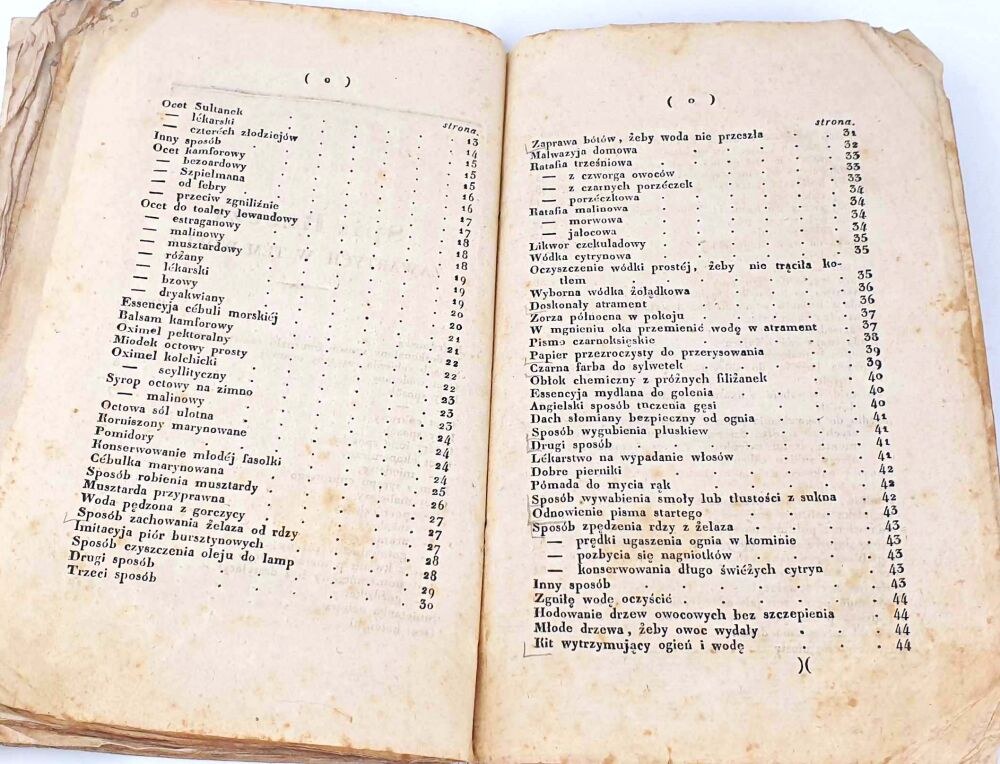 ( o )
strona.
Ocet Sultanek 13
— lékarski 14
— czterech złodziejów 15
Inny sposób 15
Ocet kamforowy 15
— bezoardowy 16
— Szpielmana 16
— od febry 17
— przeciw zgniliźnie 17
Ocet do toalety lewandowy 18
— estraganowy 18
— malinowy 18
— musztardowy 19
— różany 19
— lékarski 19
— bzowy 20
— dryakwiany 20
Essencyja cébuli morskiéj 21
Balsam kamforowy 21
Oximel pektoralny 22
Miodek octowy prosty 22
Oximel kolchicki 22
— scyllityczny 23
Syrop octowy na zimno 23
— malinowy 23
Octowa sól ulotna 24
Korniszony marynowane 24
Pomidory 24
Konserwowanie młodéj fasolki 24
Cébulka marynowana 25
Sposób robienia musztardy 26
Musztarda przyprawna 27
Woda pędzona z gorczycy 27
Sposób zachowania żelaza od rdzy 27
Imitacyja piór bursztynowych 28
Sposób czyszczenia oleju do lamp 28
Drugi sposób 29
Trzeci sposób 30
( o )
strona.
Zaprawa bótów, żeby woda nie przeszła 31
Malwazyja domowa 32
Ratafia trześniowa 33
— z czworga owoców 33
— z czarnych porzéczek 33
— porzéczkowa 34
Ratafia malinowa 34
— morwowa 34
— jałocowa 34
Likwor czekuladowy 35
Wódka cytrynowa 35
Oczyszczenie wódki prostéj, żeby nie trąciła ko-
tłem 35
Wyborna wódka żołądkowa 36
Doskonały atrament 36
Zorza północna w pokoju 37
W mgnieniu oka przemienić wodę w atrament 37
Pismo czarnoksięskie 38
Papier przezroczysty do przerysowania 39
Czarna farba do sylwetek 39
Obłok chemiczny z próżnych filiżanek 40
Essencyja mydlana do golenia 40
Angielski sposób tuczenia gęsi 40
Dach słomiany bezpieczny od ognia 41
Sposób wygubienia pluskiew 41
Drugi sposób 41
Lékarstwo na wypadanie włosów 42
Dobre pierniki 42
Pómada do mycia rąk 42
Sposób wywabienia smoły lub tłustości z sukna 42
Odnowienie pisma startego 43
Sposób zpędzenia rdzy z żelaza 43
— prędki ugaszenia ognia w kominie 43
— pozbycia się nagniotków 43
— konserwowania długo świéżych cytryn 43
Inny sposób 43
Zgniłę wodę oczyścić 44
Hodowanie drzew owocowych bez szczepienia 44
Młode drzewa, żeby owoc wydały 44
Kit wytrzymujący ogień i wodę 44
)(